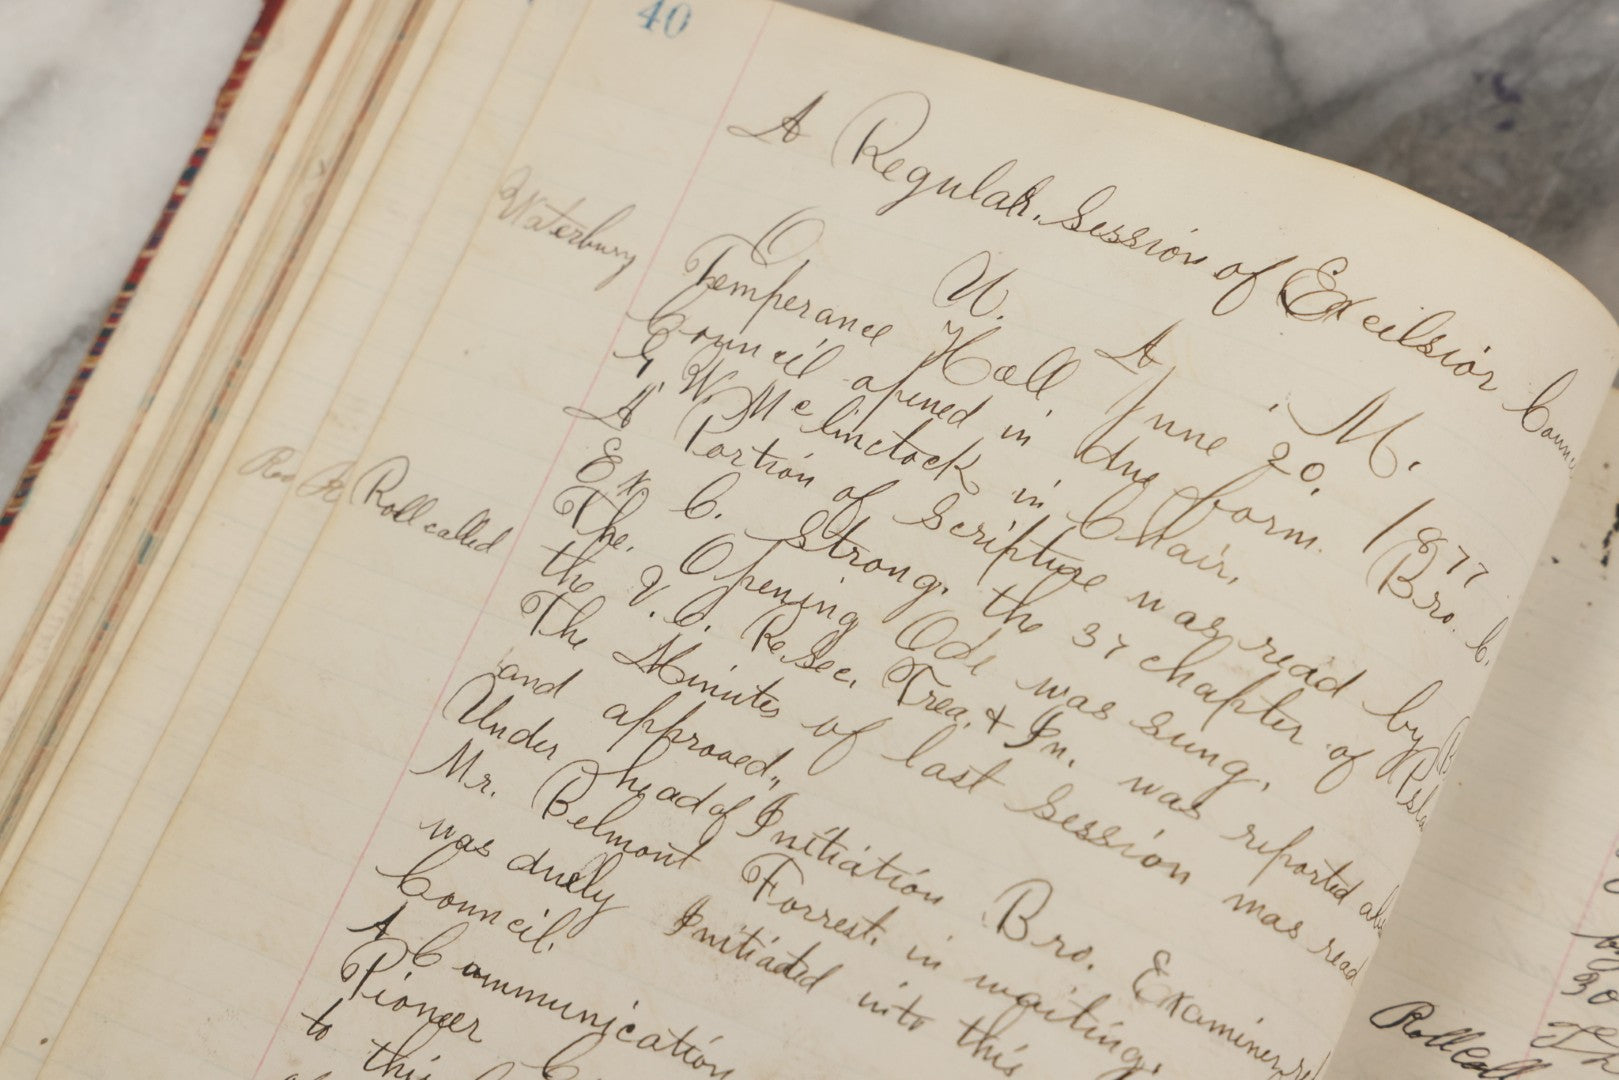 40
A Regular. Session of Excilsior
O. U. A. M.
Waterbury
Temperance Hall June 20, 1877
Council opened in due form. Bro. C.
G W. McClinctock in Chair,
A Portion of Scripture was read by
Ex C. Strong. the 37 chapter of
Roll called
The. Opening Ode was sung.
the V. C. Re. Sec. Trea. & In. was reported
The Minutes of last Session was read
and approved,,
Under head of Initiation Bro. Examiner
Mr. Belmont Forrest. in waiting.
was duely Initiated into this
Council.
A Communication
Pioneer
to this
Roll Call
30